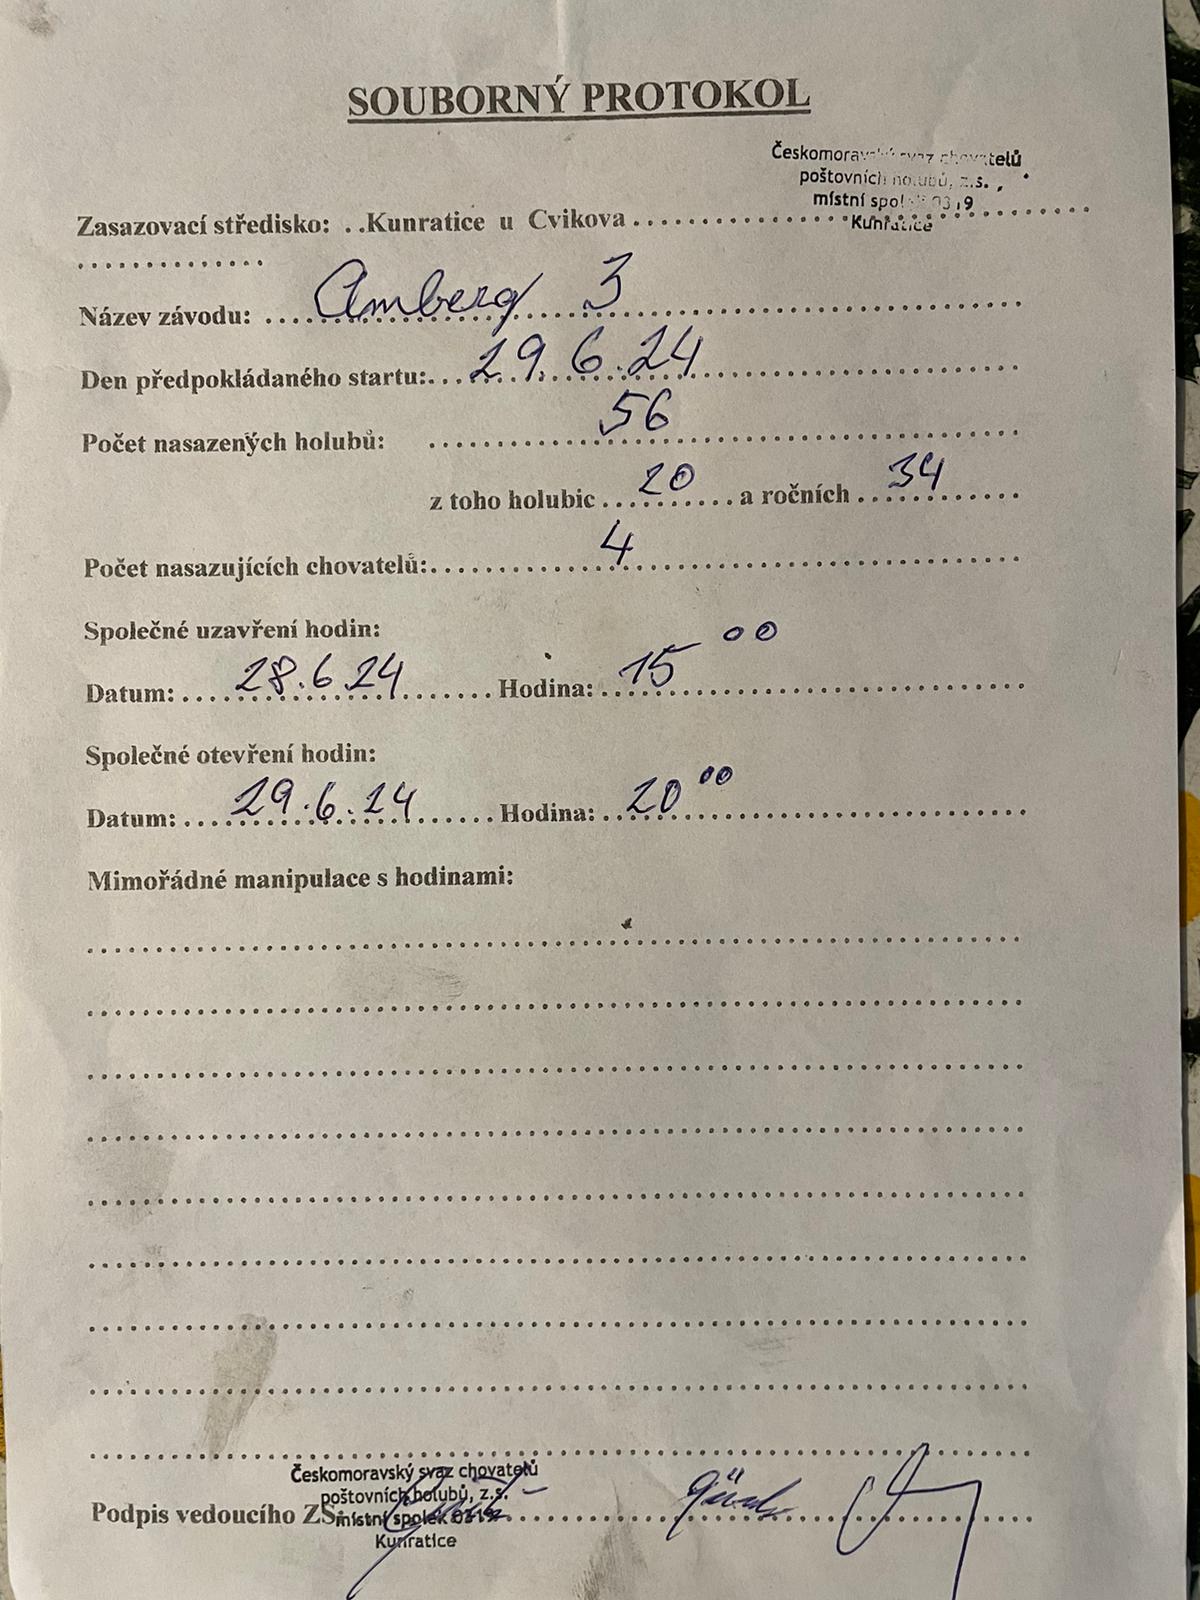 SOUBORNÝ PROTOKOL
Českomoravský svaz chovatelů
poštovních holubů, z.s.
místní spolek 0319
Kunratice
Zasazovací středisko: ..Kunratice u Cvikova..................................
..............
Název závodu: .... Amberg 3 ....................
Den předpokládaného startu:... 29.6.24 ........................
Počet nasazených holubů: 56
z toho holubic ... 20 ....... a ročních ... 34 ......
Počet nasazujících chovatelů:.... 4 ..............................
Společné uzavření hodin:
Datum: .... 28.6.24 ....... Hodina: .. 15 00 ..........................
Společné otevření hodin:
Datum: .... 29.6.24 ...... Hodina: .. 20 00 ......................
Mimořádné manipulace s hodinami:
Českomoravský svaz chovatelů
poštovních holubů, z.s.
Podpis vedoucího ZS místní spolek 0319
Kunratice